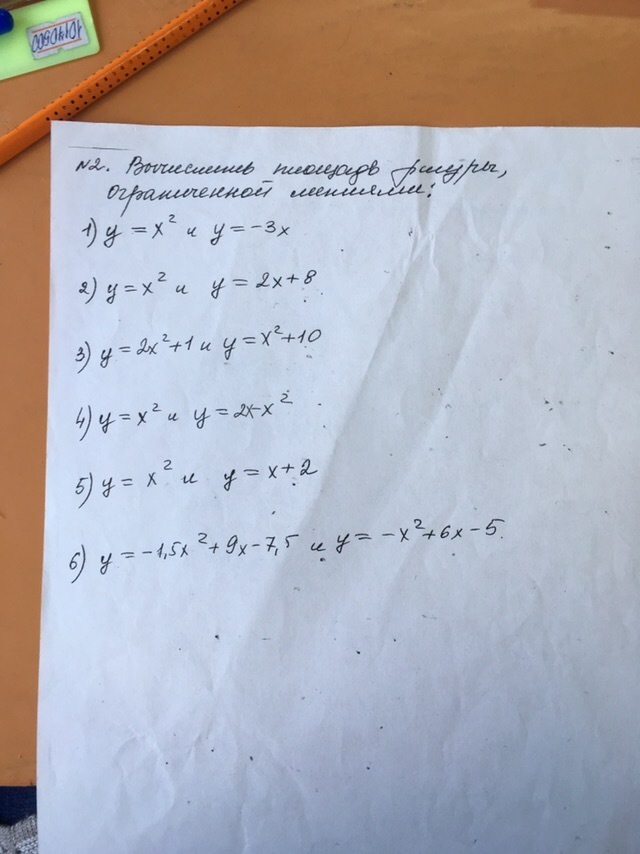 10140500
№2. Вычислить площадь фигуры,
ограниченной линиями:
1) y = x² и y = -3x
2) y = x² и y = 2x+8
3) y = 2x²+1 и y = x²+10
4) y = x² и y = 2x-x²
5) y = x² и y = x+2
6) y = -1,5x²+9x-7,5 и y = -x²+6x-5